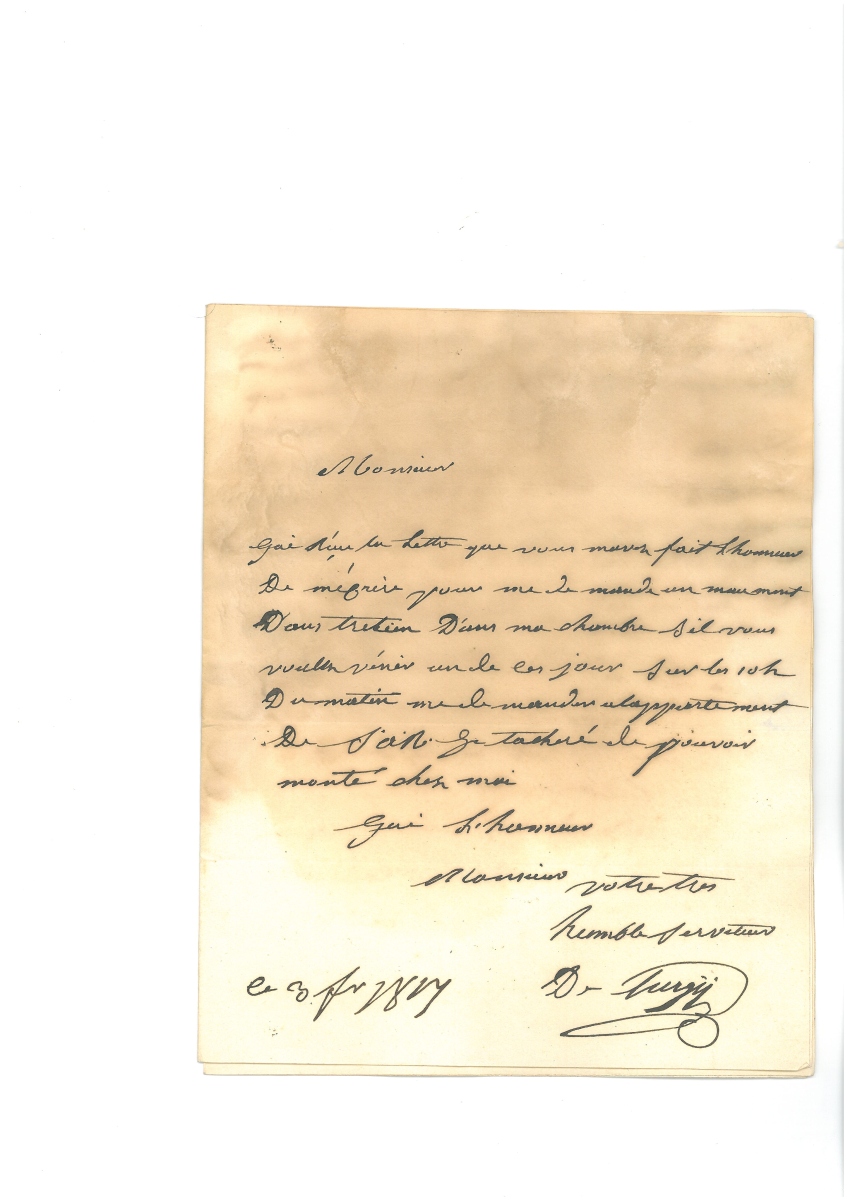 Monsieur
Gai Réçu la Lettre que vous mavez fait Lhonneur
De mécrire pour me de mandé un maument
Dans tretien Dans ma chambre Sil vous
voullez vénir un de ces jour Sur les 10h
Du matin me de mander a lappartement
De S'a R. Ge tacheré de pouvoir
monté chez moi
Gai L'honneur
Monsieur votre tres
humble Serviteur
De Turgÿ
le 3 fr 1817